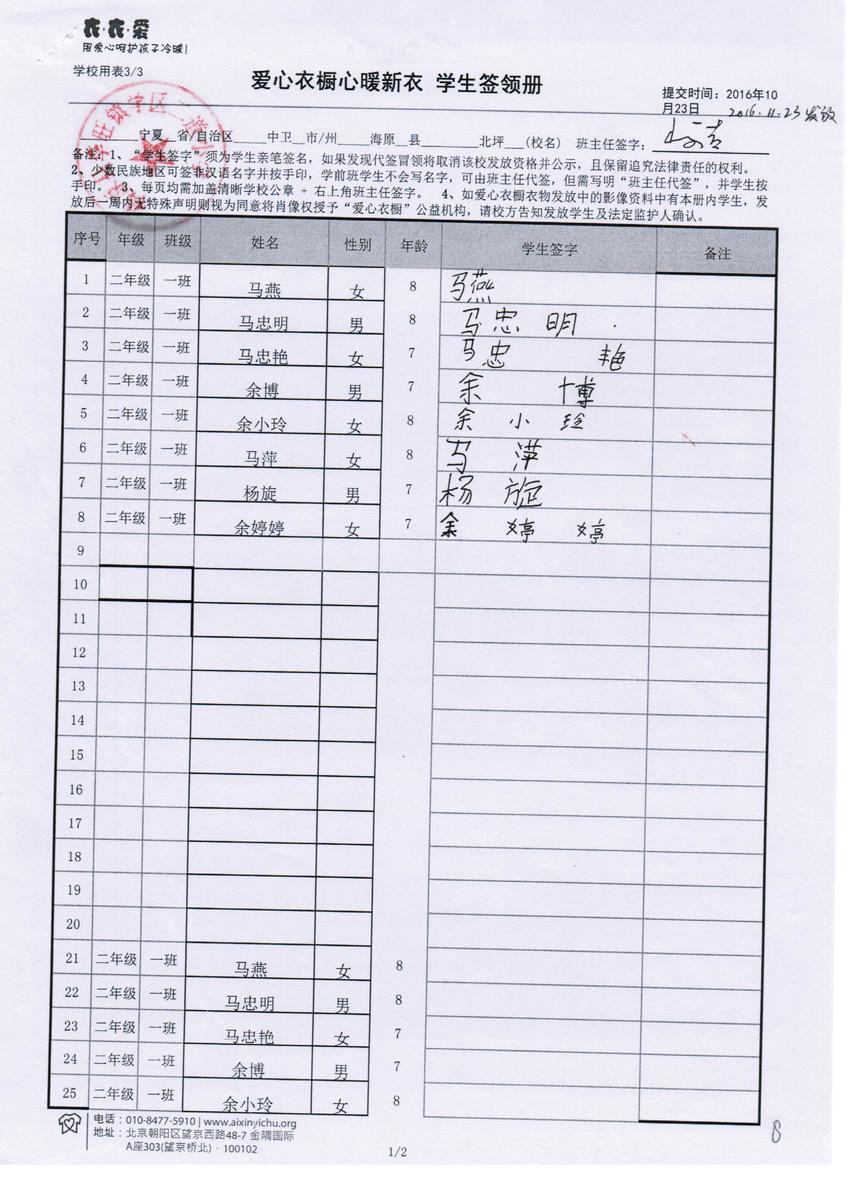 衣·衣·爱
用爱心呵护孩子冷暖!
学校用表3/3
爱心衣橱心暖新衣 学生签领册
提交时间：2016年10月23日
2016.11.23发放
宁夏 省/自治区 中卫 市/州 海原 县 北坪 (校名) 班主任签字：
备注：1、“学生签字”须为学生亲笔签名，如果发现代签冒领将取消该校发放资格并公示，且保留追究法律责任的权利。
2、少数民族地区可签非汉语名字并按手印，学前班学生不会写名字，可由班主任代签，但需写明“班主任代签”，并学生按
手印。 3、每页均需加盖清晰学校公章 + 右上角班主任签字。 4、如爱心衣橱衣物发放中的影像资料中有本册内学生，发
放后一周内无特殊声明则视为同意将肖像权授予“爱心衣橱”公益机构，请校方告知发放学生及法定监护人确认。
序号 年级 班级 姓名 性别 年龄 学生签字 备注
1 二年级 一班 马燕 女 8 马燕
2 二年级 一班 马忠明 男 8 马忠明
3 二年级 一班 马忠艳 女 7 马忠艳
4 二年级 一班 余博 男 7 余博
5 二年级 一班 余小玲 女 8 余小玲
6 二年级 一班 马萍 女 8 马萍
7 二年级 一班 杨旋 男 7 杨旋
8 二年级 一班 余婷婷 女 7 余婷婷
9
10
11
12
13
14
15
16
17
18
19
20
21 二年级 一班 马燕 女 8
22 二年级 一班 马忠明 男 8
23 二年级 一班 马忠艳 女 7
24 二年级 一班 余博 男 7
25 二年级 一班 余小玲 女 8
电话：010-8477-5910 | www.aixinyichu.org
地址：北京朝阳区望京西路48-7 金隅国际
A座303(望京桥北) · 100102
1/2
8